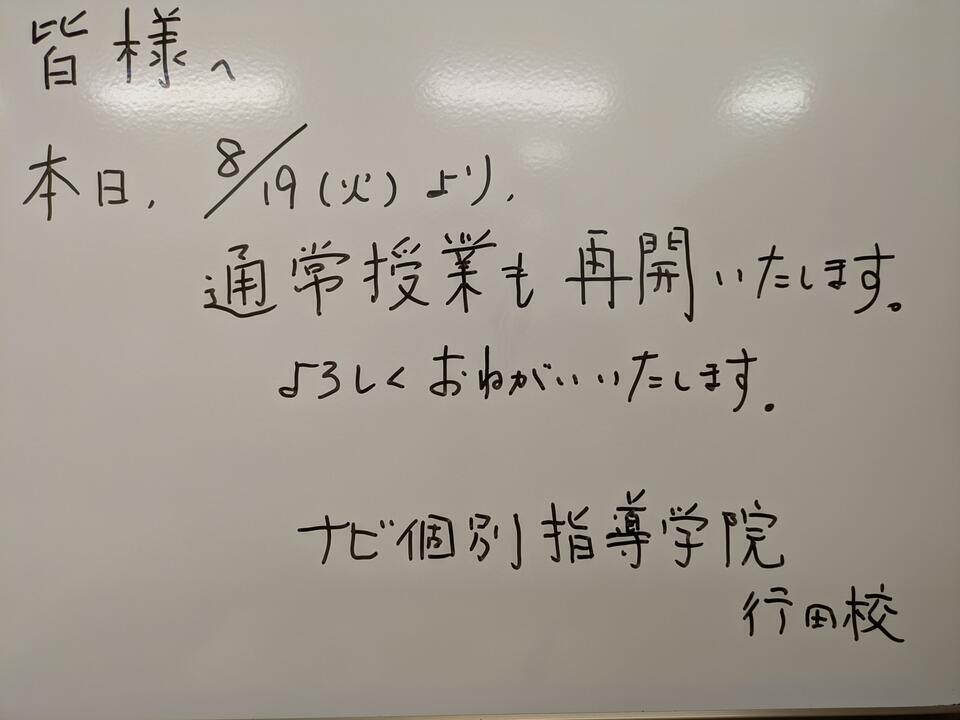 皆様へ
本日、8/19(火)より、
通常授業も再開いたします。
よろしくおねがいいたします。
ナビ個別指導学院
行田校